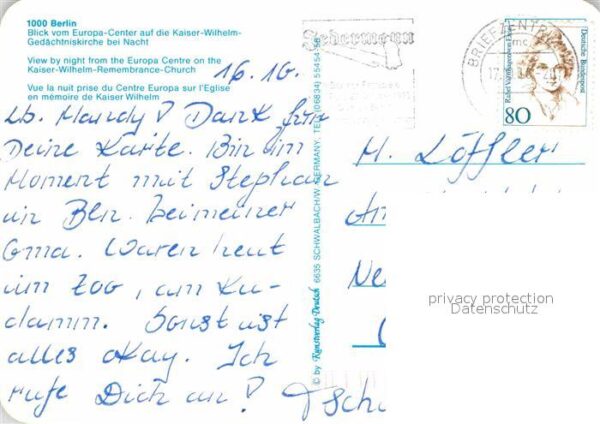 1000 Berlin
Blick vom Europa-Center auf die Kaiser-Wilhelm-
Gedächtniskirche bei Nacht
View by night from the Europa Centre on the
Kaiser-Wilhelm-Remembrance-Church
Vue la nuit prise du Centre Europa sur l'Eglise
en mémoire de Kaiser Wilhelm
16.10.
Lb. Mandy! Dank für
Deine Karte. Bin im
Moment mit Stephan
in Bln. bei meiner
Oma. Waren heut
im Zoo, am Ku-
damm. Sonst ist
alles okay. Ich
rufe Dich an! Tschü
© by Kunstverlag Deutsch 6635 SCHWALBACH/W.-GERMANY, TEL. (06834) 55454-56
Jedermann
BRIEFZENTR
17.
Deutsche Bundespost
Rahel Varnhagen von Ense
80
M. Löffler
Am
Ne
privacy protection
Datenschutz